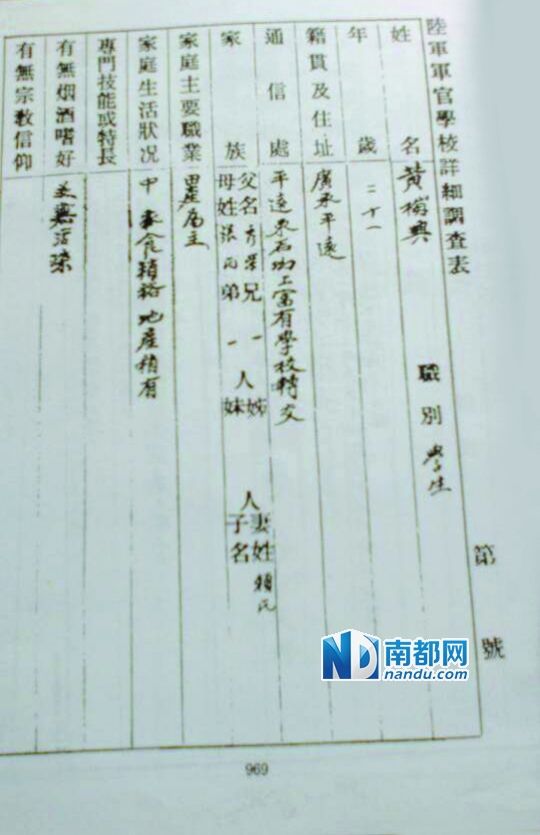 陸軍軍官學校詳細調查表
第 號
姓名 黃梅興 職別 學生
年歲 二十一
籍貫及住址 廣東平遠
通信處 平遠東石坳上富有學校轉交
家族 父名 兄 一 人 姊 人 妻姓 賴氏
母姓 張氏 弟 一 妹 子名
家庭主要職業 業主
家庭生活狀况 中 衣食積裕地產稍有
專門技能或特長
有無烟酒嗜好
有無宗教信仰
南都网
nandu.com
969